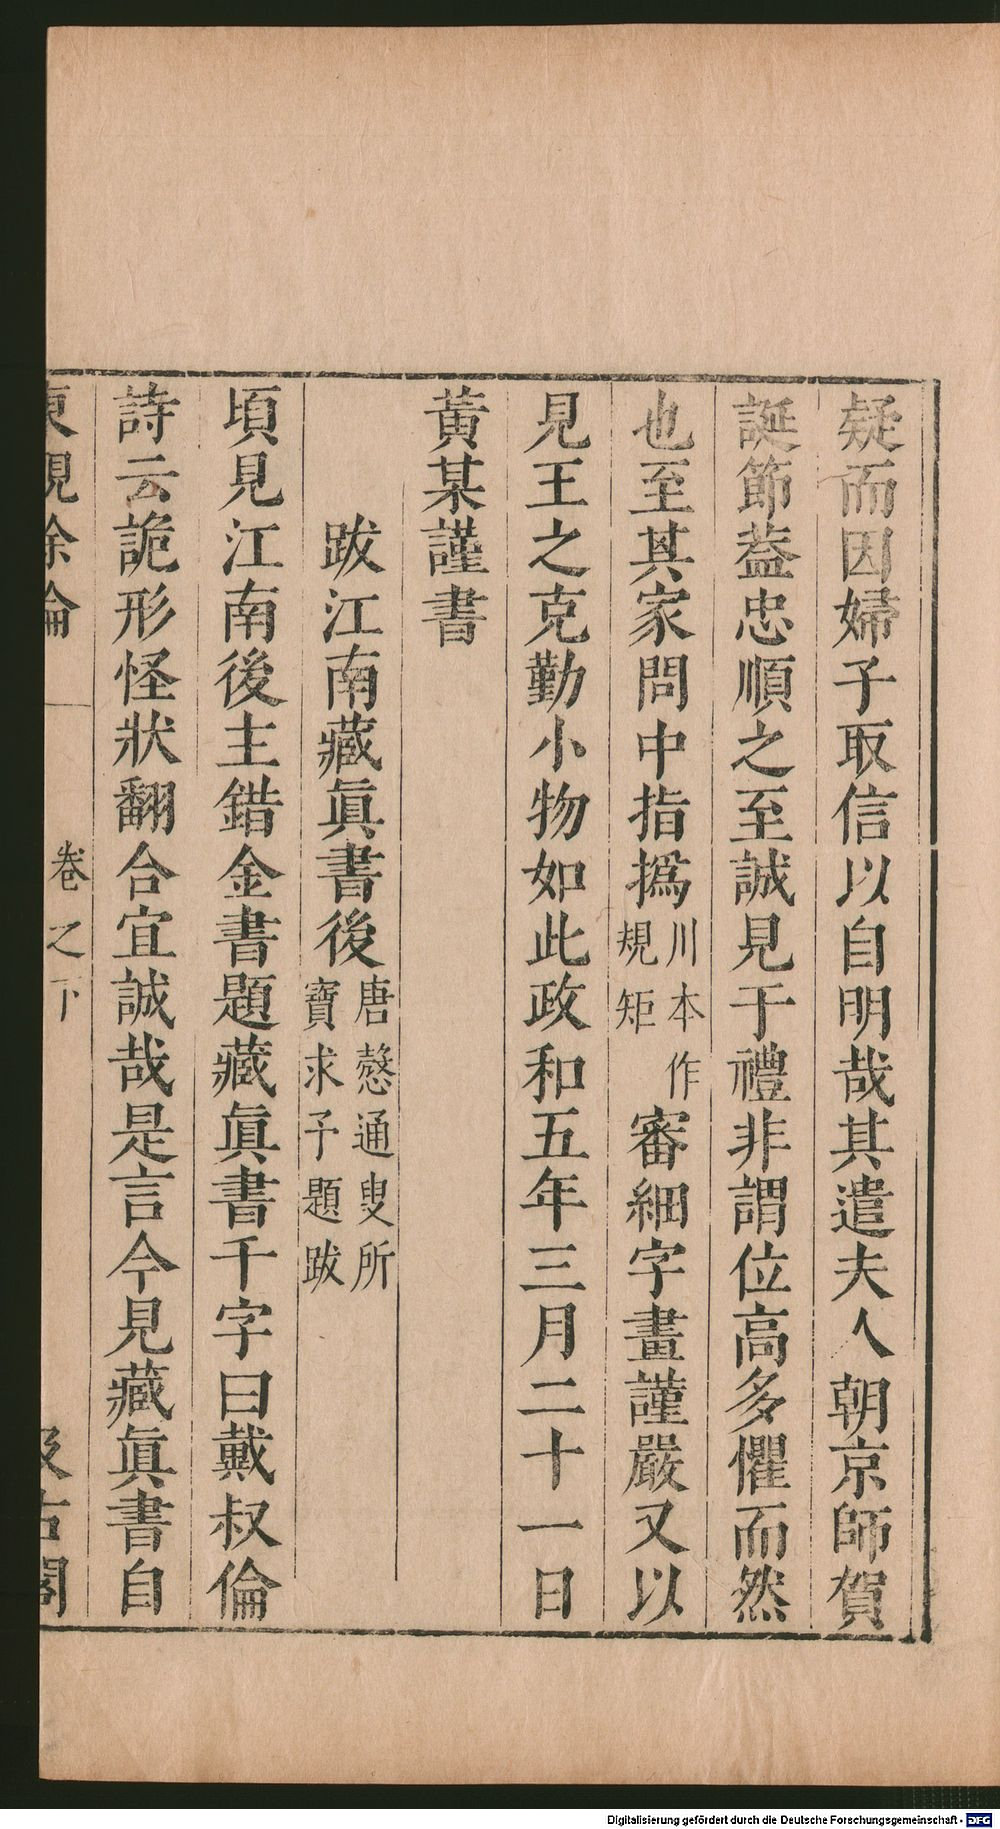 疑而因婦子取信以自明哉其遣夫人朝京師賀
誕節葢忠順之至誠見于禮非謂位高多懼而然
也至其家問中指撝川本作規矩審細字畫謹嚴又以
見王之克勤小物如此政和五年三月二十一日
黃某謹書
跋江南藏眞書後唐慤通叟所寶求予題跋
頃見江南後主錯金書題藏眞書千字曰戴叔倫
詩云詭形怪狀翻合宜誠哉是言今見藏眞書自
東觀余論 卷之下 汲古閣
Digitalisierung gefördert durch die Deutsche Forschungsgemeinschaft - DFG